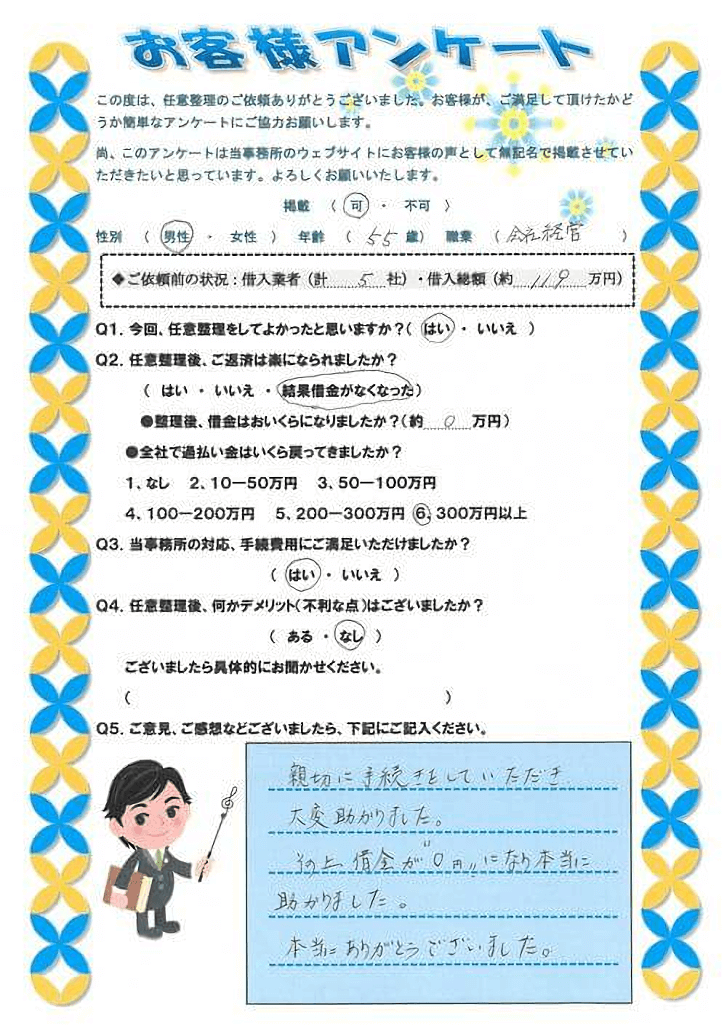 お客様アンケート
この度は、任意整理のご依頼ありがとうございました。お客様が、ご満足して頂けたかど
うか簡単なアンケートにご協力お願いします。
尚、このアンケートは当事務所のウェブサイトにお客様の声として無記名で掲載させてい
ただきたいと思っています。よろしくお願いいたします。
掲載 （ 可 ・ 不可 ）
性別 （ 男性 ・ 女性 ） 年齢 （ 55 歳） 職業 （ 会社経営 ）
◆ご依頼前の状況：借入業者（計 5 社）・借入総額（約 119 万円）
Q1. 今回、任意整理をしてよかったと思いますか？（ はい ・ いいえ ）
Q2. 任意整理後、ご返済は楽になられましたか？
（ はい ・ いいえ ・ 結果借金がなくなった）
●整理後、借金はおいくらになりましたか？（約 0 万円）
●全社で過払い金はいくら戻ってきましたか？
1、なし 2、10－50万円 3、50－100万円
4、100－200万円 5、200－300万円 6、300万円以上
Q3. 当事務所の対応、手続費用にご満足いただけましたか？
（ はい ・ いいえ ）
Q4. 任意整理後、何かデメリット（不利な点）はございましたか？
（ ある ・ なし ）
ございましたら具体的にお聞かせください。
（ ）
Q5. ご意見、ご感想などございましたら、下記にご記入ください。
親切に手続きをしていただき
大変助かりました。
その上 借金が"0円"になり本当に
助かりました。
本当にありがとうございました。